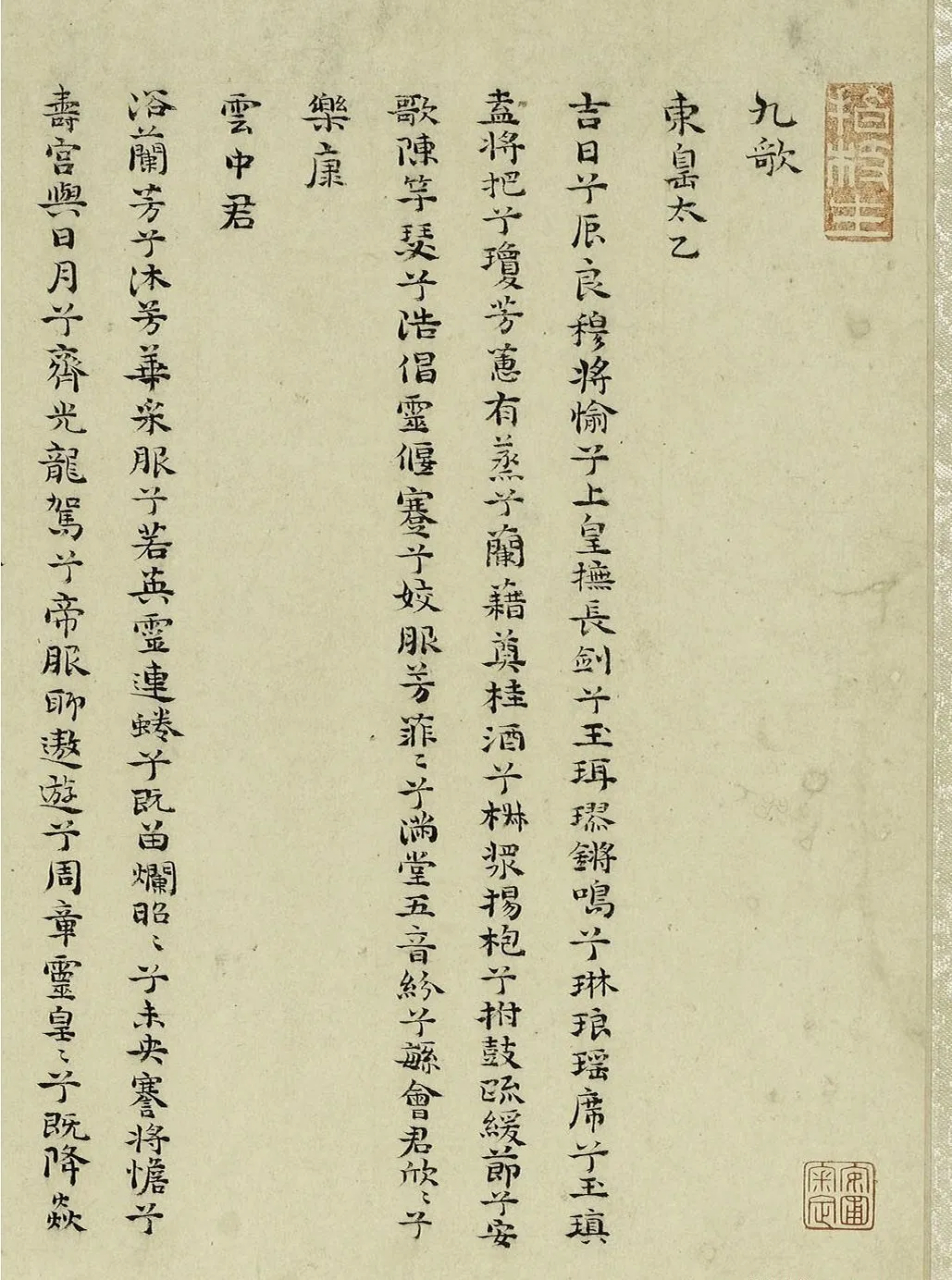 九歌
東皇太乙
吉日兮辰良穆將愉兮上皇撫長劍兮玉珥璆鏘鳴兮琳琅瑶席兮玉瑱
盍將把兮瓊芳蕙肴蒸兮蘭藉奠桂酒兮椒漿揚枹兮拊鼓疏緩節兮安
歌陳竽瑟兮浩倡靈偃蹇兮姣服芳菲〻兮滿堂五音紛兮繇會君欣〻兮
樂康
雲中君
浴蘭芳兮沐芳華采服兮若英靈連蜷兮既留爛昭〻兮未央謇將憺兮
壽宫與日月兮齊光龍駕兮帝服聊遨遊兮周章靈皇〻兮既降猋